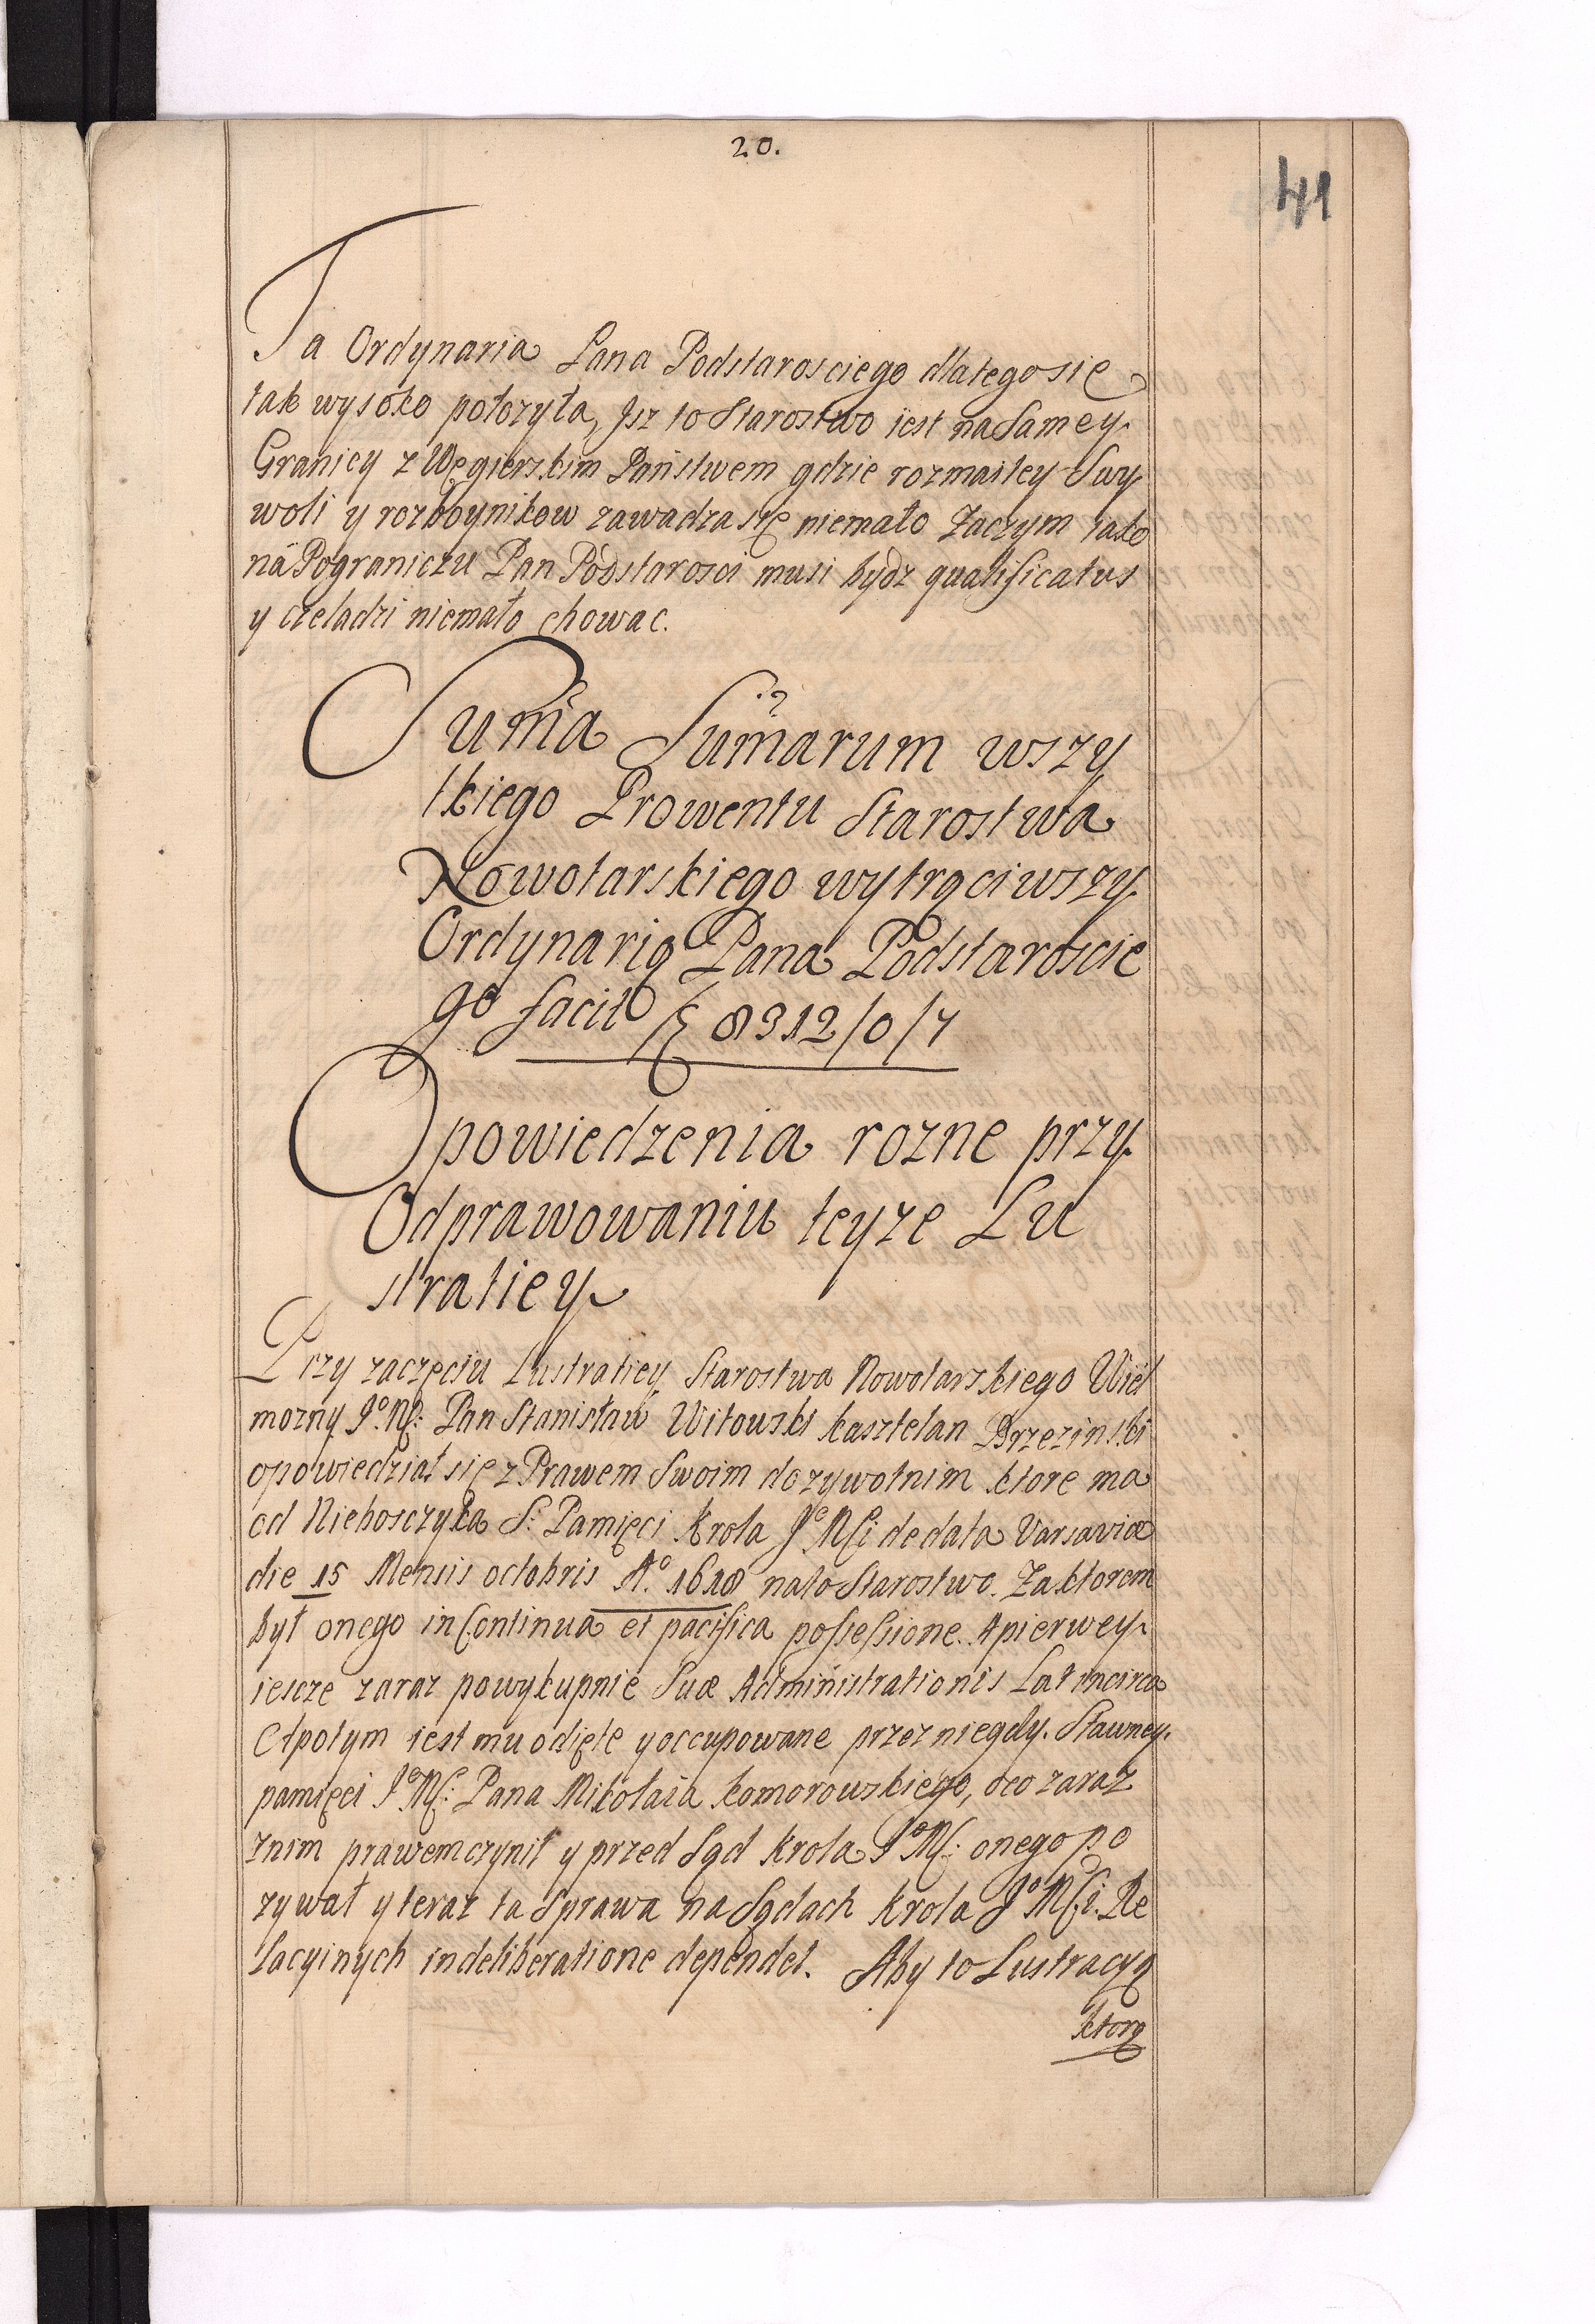 20.
41
Ta Ordynaria Pana Podstarosciego dlategosię
tak wysoko połozyła, Jsz to Starostwo iest na Samey
Granicy z Węgierskim Państwem gdzie rozmaitey Swy
woli y rozboynikow zawadza się niemało Zaczym iako
ná Pograniczu Pan Podstarosci musi bydz qualificatus
y czeladzi niemało chowac.
Sum̃a Sum̃arum wszy
tkiego Prowentu Starostwa
Nowotarskiego wytrąciwszy
Ordynarią Pana Podstaroscie
go facit f 8312/0/7
Opowiedzenia rozne przy
Odprawowaniu teyze Lu
stratiey
Przy zaczęciu Lustratiey Starostwa Nowotarskiego Wiel
mozny Jo. Mſ: Pan Stanisław Witowski kasztelan Brzezinski
opowiedział się z Prawem Swoim dozywotnim ktore ma
od Nieboszczyka S: Pamięci Krola Jo Mſci de data Varsaviæ
die 15 Mensis octobris Ao. 1618 na to Starostwo. Zaktorem
był onego in Continua et pacifica possessione. A pierwey
iescze zaraz powykupnie Suæ Administrationis Lat circa
Apotym iest mu odięte y occupowane przez niegdy Sławney
pamięci Jo Mſ: Pana Mikołaia Komorowskiego, oco zaraz
znim prawem czynił y przed Sąd Krola Jo Mſ: onego po
zywał y teraz ta Sprawa na Sądach Krola Jo Mſci. Re
lacyinych in deliberatione dependet. Aby to Lustracyą
ktorą